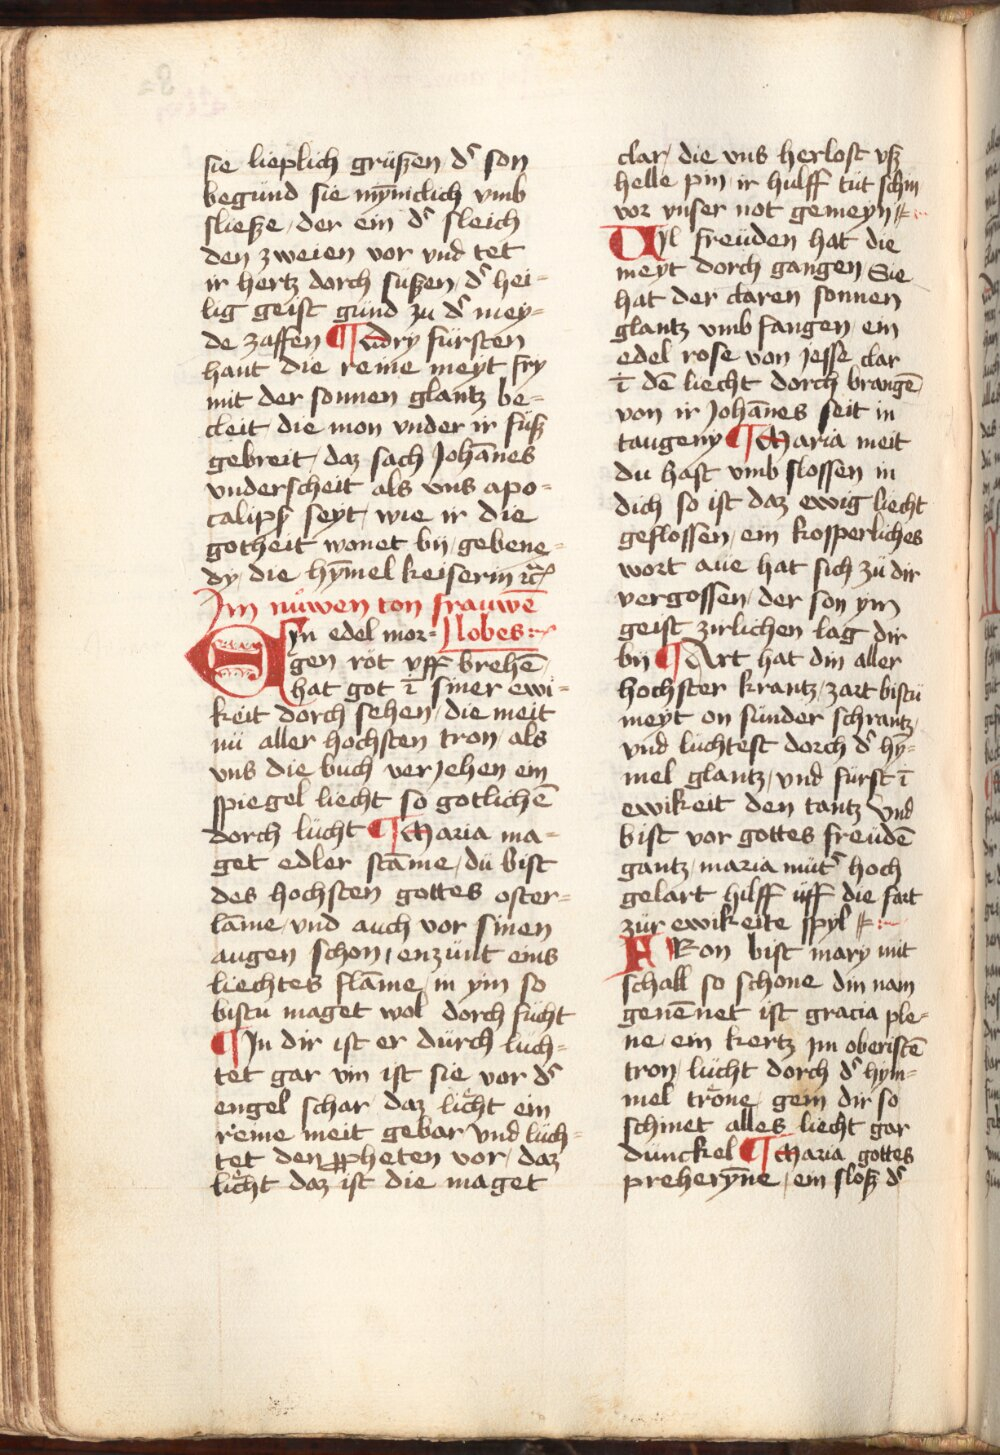 sie lieplich grüßen dˢ son
begund sie my̅niclich vmb
slieẞe / der ein dˢ sleich
den zweien vor vnd tet
ir hertz dorch süßen / dˢ hei=
lig geist gund zu dˢ mey=
de zaffen ¶ dry fürsten
hant die reine meyt fry
mit der sonnen glantz be=
cleit / die mon vnder ir füß
gebreit / daz sach Joha̅nes
vnderscheit als vns apo=
calipẏ seyt / wie ir die
gotheit wonet bij / gebene=
dy / die hy̅mel keiserin rc̃
Im nuͦwen ton frauwe̅
EYn edel mor= lobes
gen röt vff brehen
hat got i̅ siner ewi=
keit dorch sehen / die meit
nü aller hochsten tron / als
vns die buch verjehen ein
spiegel liecht so gotliche̅
dorch lücht ¶ Maria ma=
get edler sta̅me / du bist
des hochsten gottes oster=
la̅me / vnd auch vor sinen
augen schon / enzünt eins
liechtes fla̅me / in ym so
bistu maget wol dorch fücht
¶ In dir ist er dürch lüch=
tet gar vm ist sie vor dˢ
engel schar daz licht ein
reine meit gebar vnd lüch=
tet den ꝓpheten vor / daz
licht daz ist die maget
clar / die vns herlost vß
helle pin / ir hulff tüt schin
vor vnser not gemeyn
VIl freüden hat die
meyt dorch gangen Sie
hat der claren sonnen
glantz vmb fangen / ein
edel rose von Jesse clar
i̅ de̅ liecht dorch brange̅
von ir Joha̅nes seit in
taugeny ¶ Maria meit
du hast vmb slossen in
dich so ist daz ewig liecht
geflossen / ein kosperliches
wort aüe hat sich zü dir
vergossen / der son ym
geist zirlichen lag dir
bij ¶ Art hat din aller
hochster krantz / zart bistü
meyt on sünder schrantz /
vnd lüchtest dorch dˢ hy̅=
mel glantz / vnd fürst i̅
ewikeit den tantz vnd
bist vor gottes freüde̅
gantz / maria mütˢ hoch
gelart hilff üff die fart
zür ewikeite spyl
FRon bist mary mit
schall so schone din nam
gene̅net ist gracia ple=
ne / ein kertz im oberiste̅
tron / lücht dorch dˢ hym=
mel tröne / gein dir so
schinet alles liecht gar
dünckel ¶ Maria gottes
prehery̅ne / ein sloß dˢ